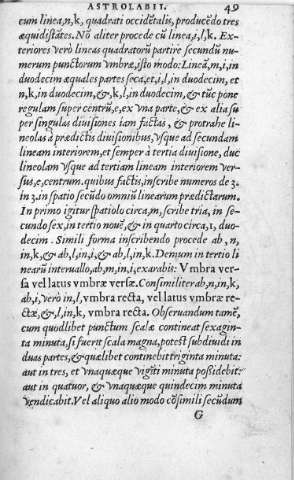 ASTROLABII. 49
cum linea, n, k, quadrati occidētalis, producēdo tres
æquidistātes. Nō aliter procede cū linea, i, l, k. Ex-
teriores verò lineas quadratorū partire secundū nu-
merum punctorum vmbræ, isto modo: Lineā, m, i, in
duodecim æquales partes seca, et, i, l, in duodecim, et
n, k, in duodecim, & k, l, in duodecim, & tūc pone
regulam super centrū, e, ex vna parte, & ex alia su
per singulas diuisiones iam factas, & protrahe li-
neolas à prædictis diuisionibus, vsque ad secundam
lineam interiorem, et semper à tertia diuisione, duc
lineolam vsque ad tertiam lineam interiorem ver-
sus, e, centrum. quibus factis, inscribe numeros de 3.
in 3, in spatio secūdo omniū linearum prædictarum.
In primo igitur spatiolo circa, m, scribe tria, in se-
cundo sex, in tertio nouē, & in quarto circa, i, duo-
decim. Simili forma inscribendo procede ab, n,
in, k, & ab, l, in, i, & ab, l, in, k. Demum in tertio li
nearū interuallo, ab, m, in, i, exarabis: Vmbra ver-
sa vel latus vmbræ versæ. Consimiliter ab, n, in, k,
ab, i, verò in, l, vmbra recta, vel latus vmbræ re-
ctæ, & , l, in, k, vmbra recta. Obseruandum tamē,
cum quodlibet punctum scalæ contineat sexagin-
ta minuta, si fuerit scala magna, potest subdiuidi in
duas partes, & quælibet continebit triginta minuta:
aut in tres, et vnaquæque vigīti minuta possidebit:
aut in quatuor, & vnaquæque quindecim minuta
vendicabit. Vel aliquo alio modo cōsimili secūdum
G